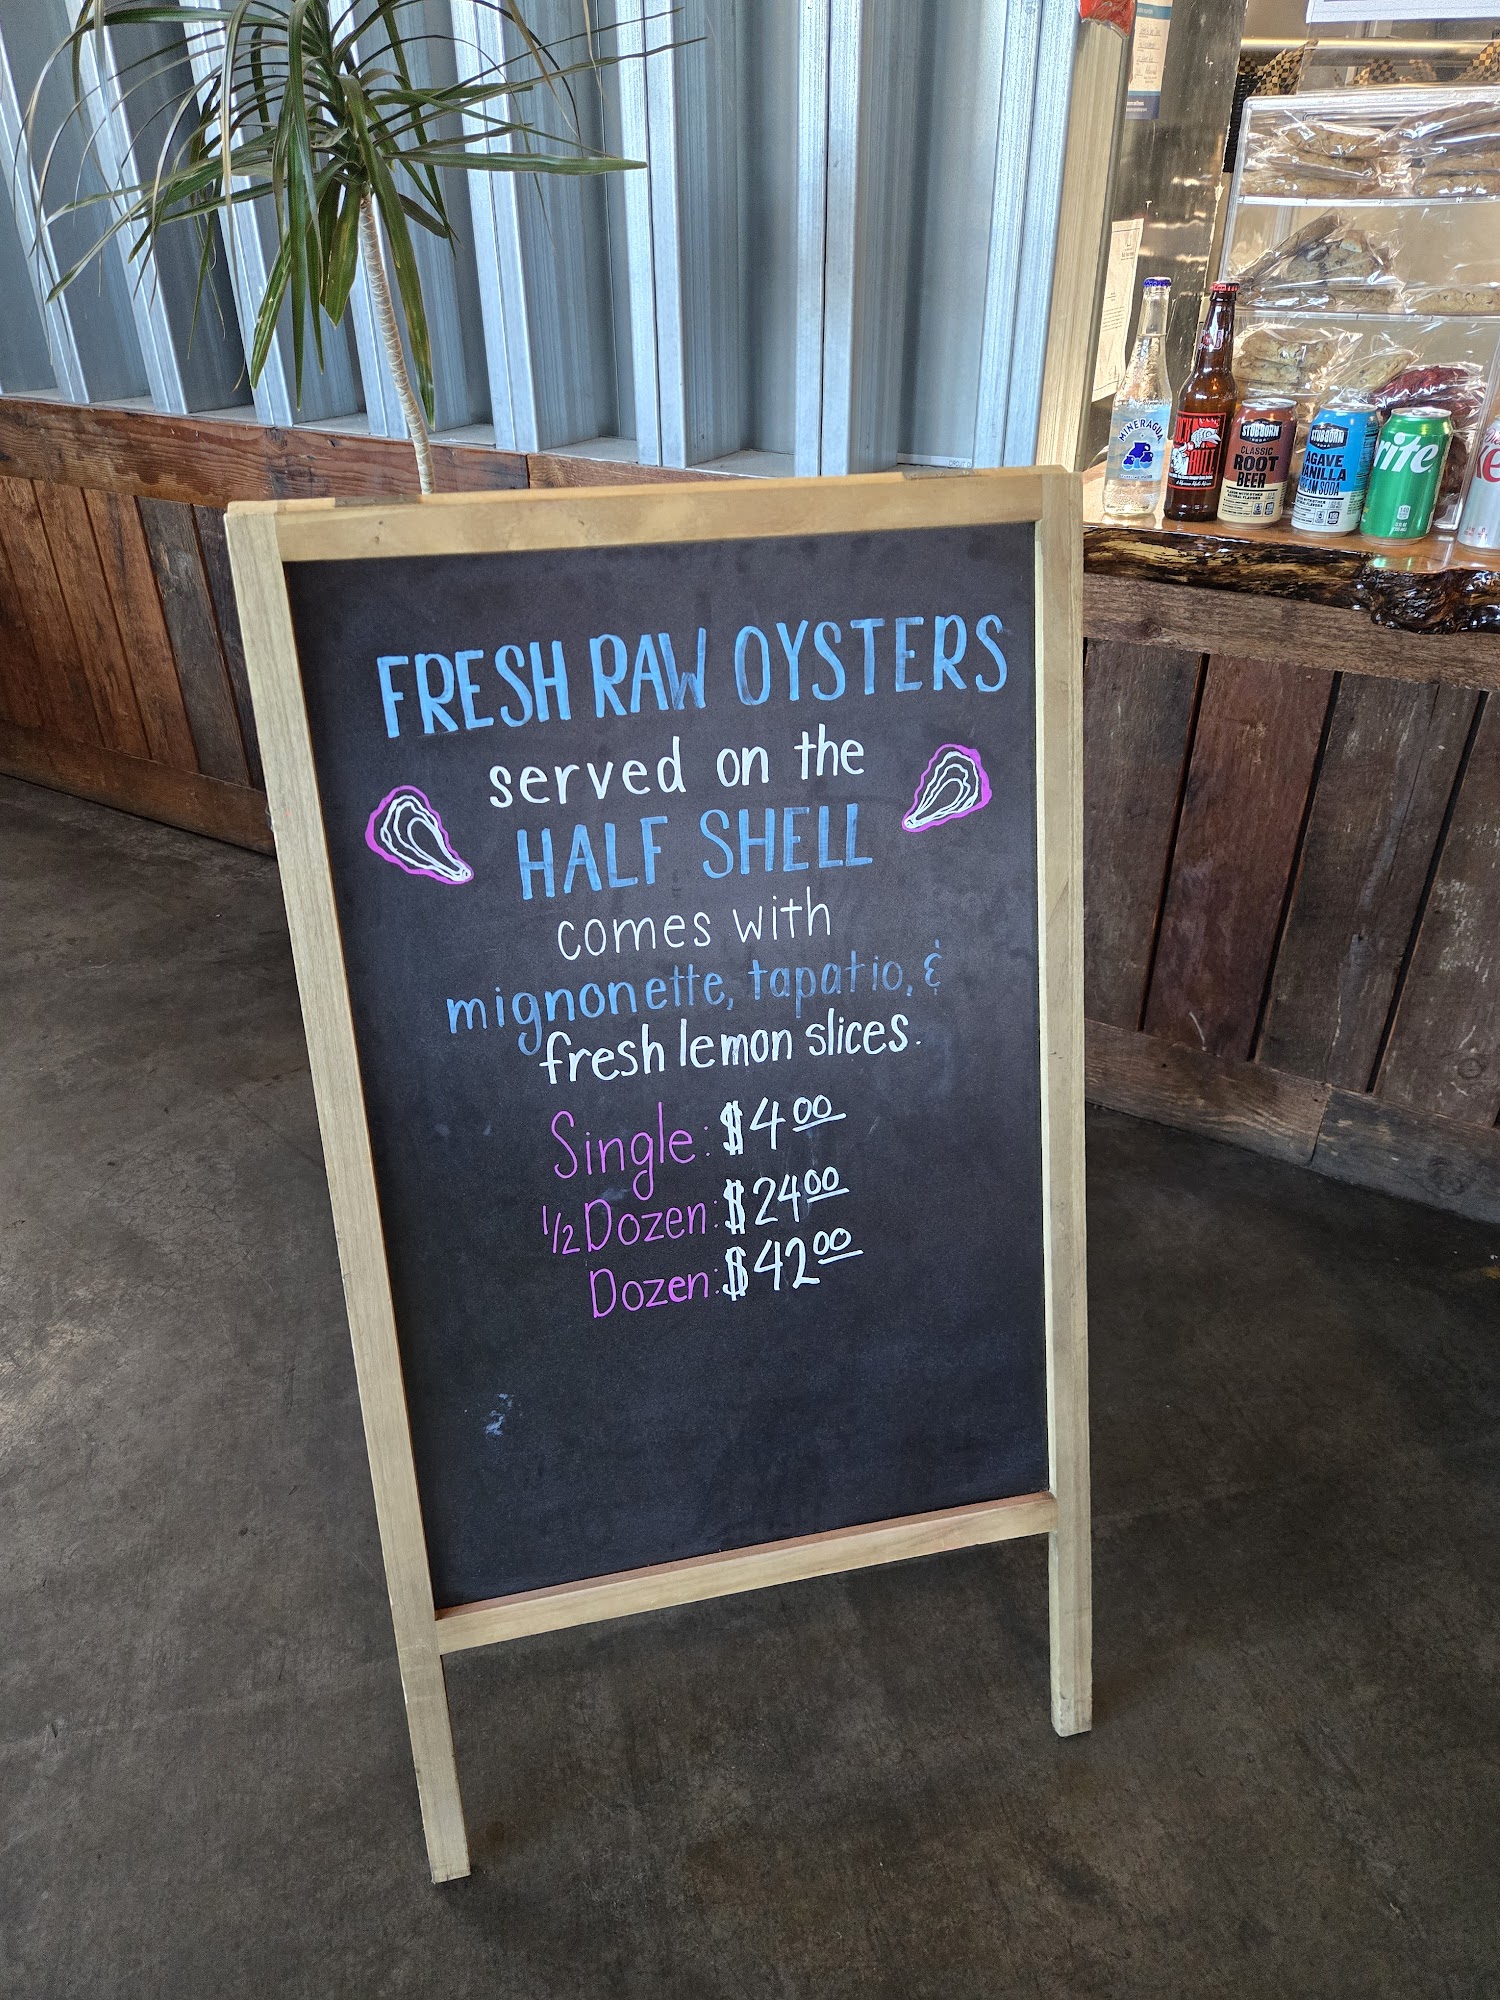 FRESH RAW OYSTERS
served on the
HALF SHELL
comes with
mignonette, tapatio, &
fresh lemon slices.
Single: $4.00
1/2 Dozen: $24.00
Dozen: $42.00
MINERAGUA
BULL
STUBBORN
SODA
CLASSIC
ROOT
BEER
STUBBORN
SODA
AGAVE
VANILLA
CREAM SODA
rite